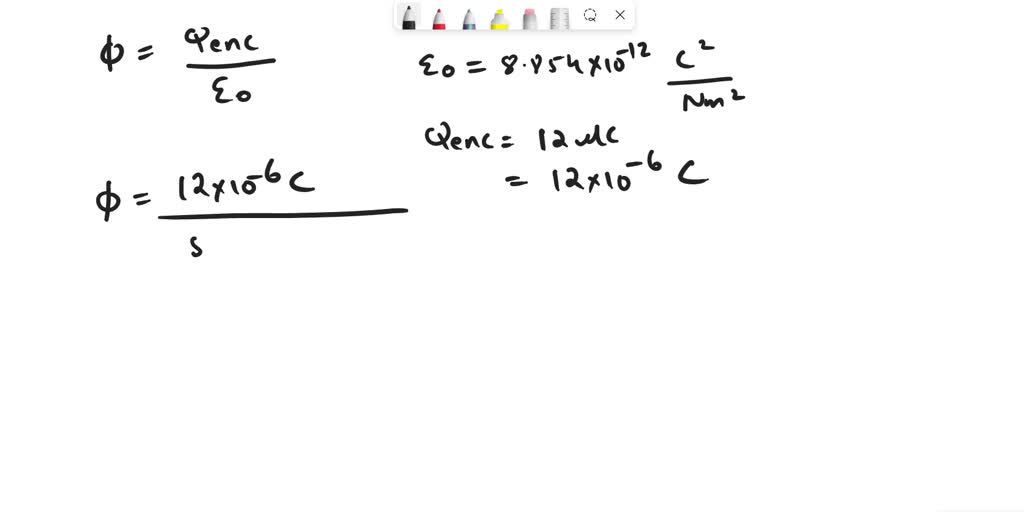 φ = Qenc / ε0
ε0 = 8.854×10^-12 C^2 / Nm^2
Qenc = 12 μC
= 12×10^-6 C
φ = 12×10^-6 C /
8